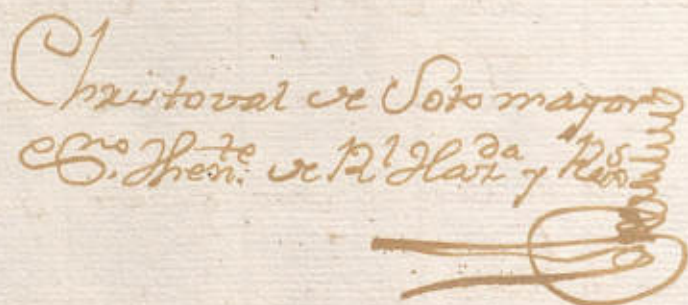 Christoval de Sotomayor
Es.no Then.te de Rl Haz.da y Rexos